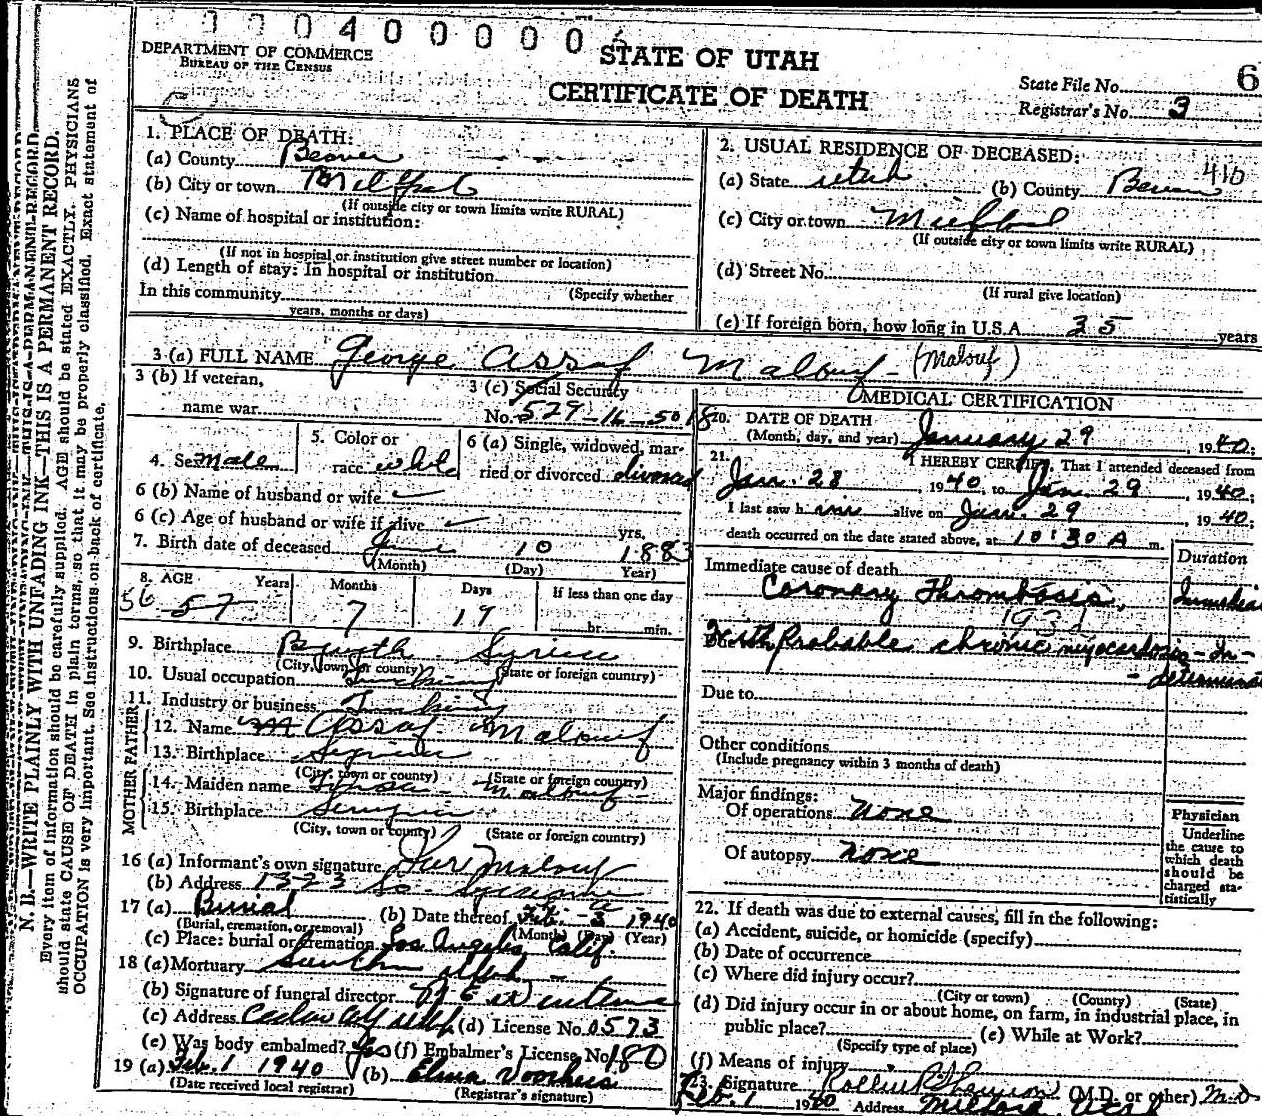 0 0 0 4 0 0 0 0 0
DEPARTMENT OF COMMERCE
BUREAU OF THE CENSUS
STATE OF UTAH
CERTIFICATE OF DEATH
6
State File No.
Registrar's No. 3
N. B.—WRITE PLAINLY WITH UNFADING INK—THIS IS A PERMANENT RECORD.
Every item of information should be carefully supplied. AGE should be stated EXACTLY. PHYSICIANS
should state CAUSE OF DEATH in plain terms, so that it may be properly classified. Exact statement of
OCCUPATION is very important. See instructions on back of certificate.
1. PLACE OF DEATH:
(a) County Beaver
(b) City or town Milford
(If outside city or town limits write RURAL)
(c) Name of hospital or institution:
(If not in hospital or institution give street number or location)
(d) Length of stay: In hospital or institution
In this community (Specify whether
years, months or days)
2. USUAL RESIDENCE OF DECEASED:
(a) State Utah (b) County Beaver
(c) City or town Milford
(If outside city or town limits write RURAL)
(d) Street No.
(If rural give location)
(e) If foreign born, how long in U.S.A. 35 years
3 (a) FULL NAME George Assaf Malouf (Malouf)
3 (b) If veteran,
name war
3 (c) Social Security
No. 527-16-5018
4. Sex male
5. Color or
race white
6 (a) Single, widowed, mar-
ried or divorced divorced
6 (b) Name of husband or wife
6 (c) Age of husband or wife if alive yrs.
7. Birth date of deceased June 10 1883
(Month) (Day) Year)
8. AGE Years Months Days If less than one day
56 57 7 19 hr. min.
9. Birthplace Syria
(City, town or county) (State or foreign country)
10. Usual occupation
11. Industry or business
FATHER
12. Name Assaf Malouf
13. Birthplace Syria
(City, town or county) (State or foreign country)
MOTHER
14. Maiden name Malouf
15. Birthplace
(City, town or county) (State or foreign country)
16 (a) Informant's own signature Malouf
(b) Address 1323 So.
17 (a) Burial (b) Date thereof Feb. 3 1940
(Burial, cremation, or removal) (Month) (Day) (Year)
(c) Place: burial or cremation Los Angeles Calif.
18 (a) Mortuary Southern Utah
(b) Signature of funeral director
(c) Address Cedar City Utah (d) License No. 0573
(e) Was body embalmed? Yes (f) Embalmer's License No. 180
19 (a) Feb. 1 1940 (b) Elma Voorhees
(Date received local registrar) (Registrar's signature)
MEDICAL CERTIFICATION
20. DATE OF DEATH
(Month, day, and year) January 29, 1940;
21. I HEREBY CERTIFY, That I attended deceased from
Jan. 28, 1940, to Jan 29, 1940;
I last saw him alive on Jan. 29 1940;
death occurred on the date stated above, at 10:30 A m.
Duration
Immediate cause of death
Coronary Thrombosis,
With Probable chronic myocardosis - In-
determinate
Due to
Other conditions
(Include pregnancy within 3 months of death)
Major findings:
Of operations none
Of autopsy none
Physician
Underline
the cause to
which death
should be
charged sta-
tistically
22. If death was due to external causes, fill in the following:
(a) Accident, suicide, or homicide (specify)
(b) Date of occurrence
(c) Where did injury occur?
(City or town) (County) (State)
(d) Did injury occur in or about home, on farm, in industrial place, in
public place? (e) While at Work?
(Specify type of place)
(f) Means of injury
23. Signature (M.D. or other) M.D.
Feb. 1 1940 Address Milford, Utah